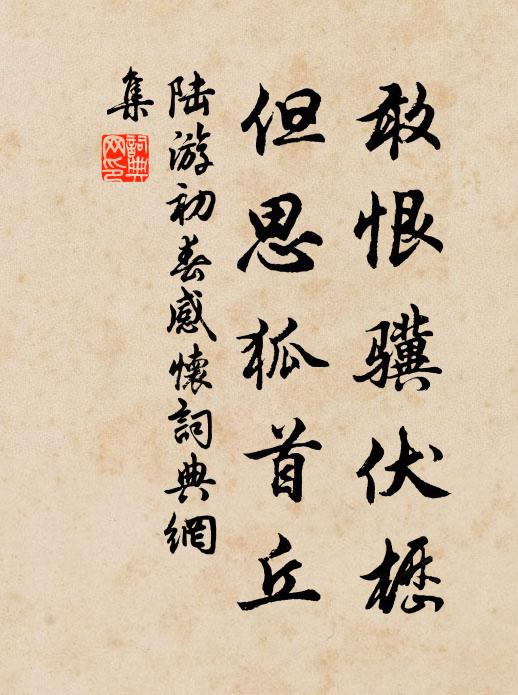 敢恨骥伏櫪
但思狐首丘
陆游初春感懷詞典網
集
詞典
网印